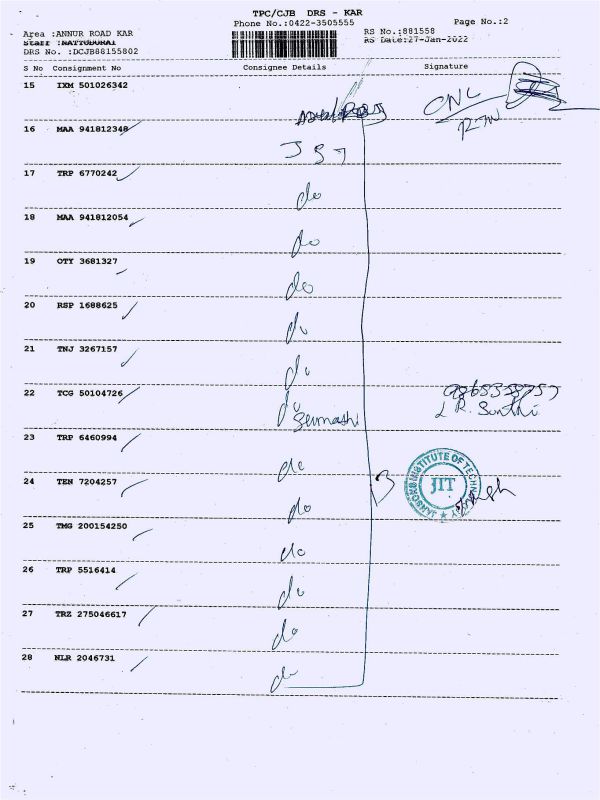 TPC/CJB DRS - KAR
Phone No.:0422-3505555
Page No.:2
Area :ANNUR ROAD KAR
RS No.:881558
Staff :NATTUDURAI
RS Date:27-Jan-2022
DRS No. :DCJB88155802
S No Consignment No Consignee Details Signature
15 IXM 501026342
16 MAA 941812348
17 TRP 6770242
do
18 MAA 941812054
do
19 OTY 3681327
do
20 RSP 1688625
do
21 TNJ 3267157
do
22 TCG 50104726
do
23 TRP 6460994
do
24 TEN 7204257
do
25 TMG 200154250
do
26 TRP 5516414
do
27 TRZ 275046617
do
28 NLR 2046731
do
INSTITUTE OF TECHNOLOGY
JIT